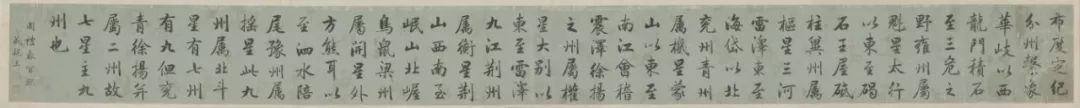 布度定紀
分州繫象
華岐以西
龍門積石
至三危之
野雍州屬
魁星太行
以東至碣
石王屋砥
柱冀州屬
樞星三河
雷澤東至
海岱以北
兗州青州
屬機星蒙
山以東至
南江會稽
震澤徐揚
之州屬權
星大別以
東至雷澤
九江荊州
屬衡星荊
山西南至
岷山北嶇
鳥鼠梁州
屬開星外
方熊耳以
至泗水陪
尾豫州屬
搖星此九
州屬北斗
星有七州
有九但兗
青徐揚并
屬二州故
七星主九
州也
成親王